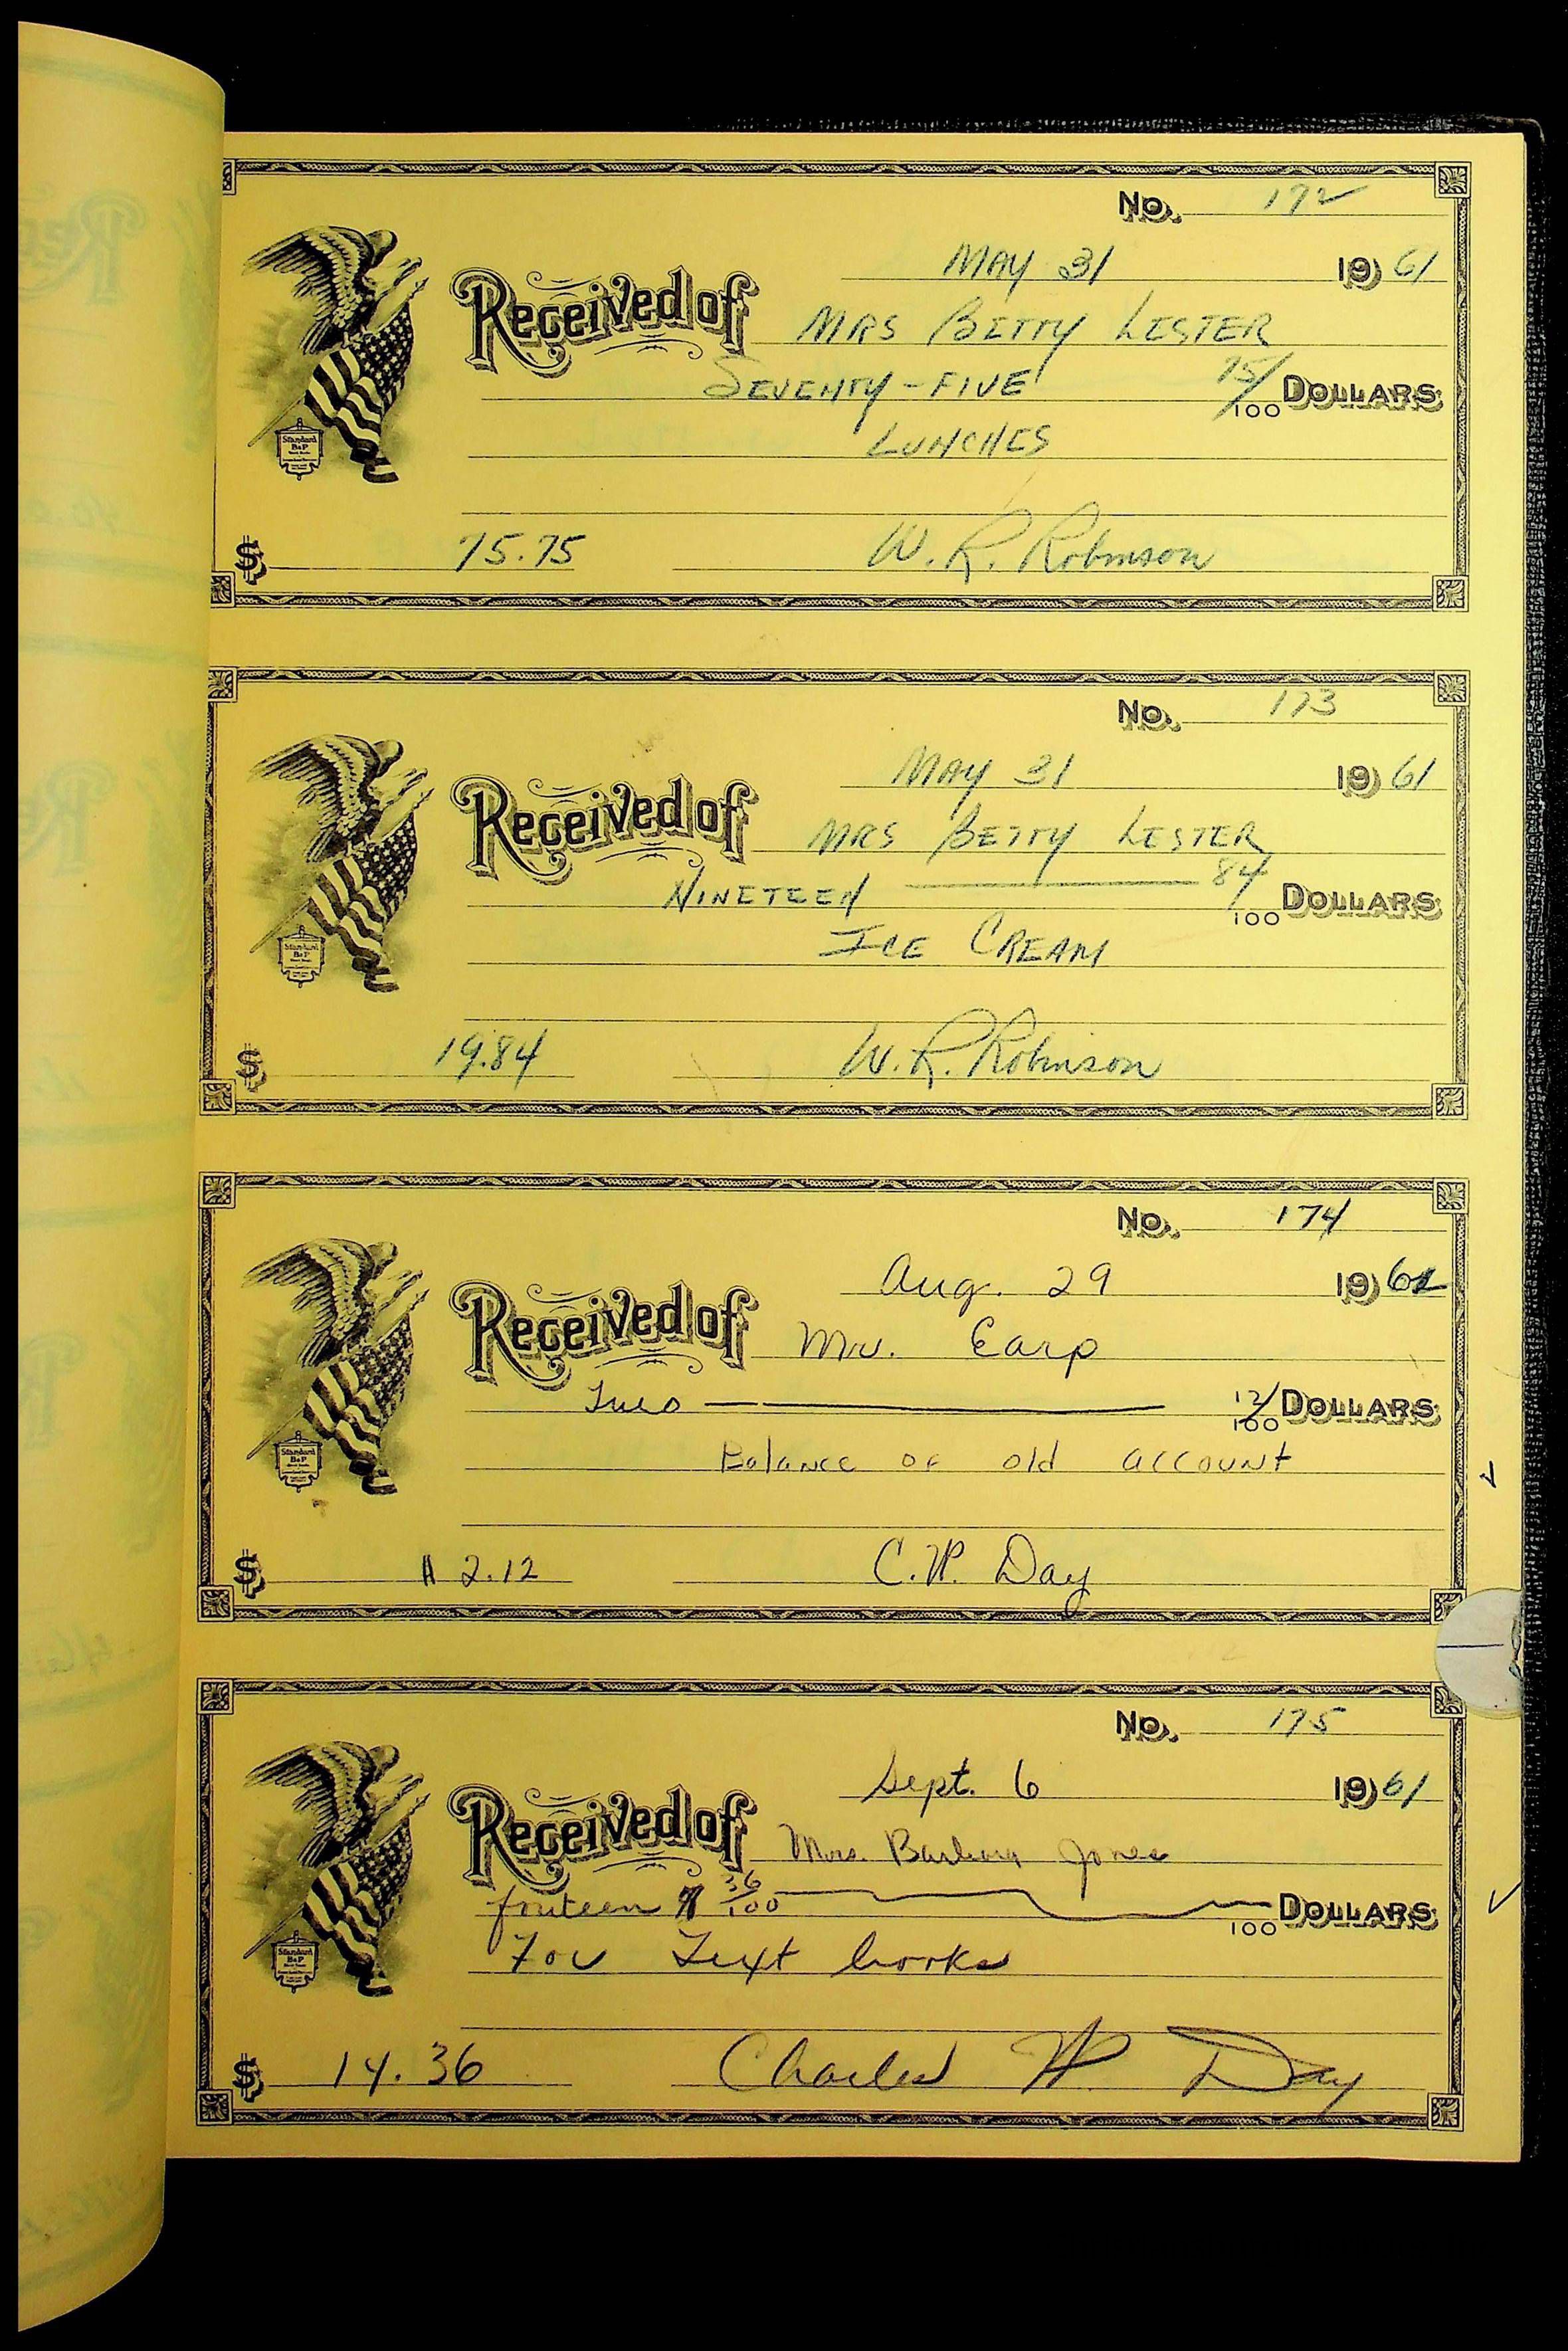 No. 172
MAY 31 1961
Received of MRS BETTY LESTER
SEVENTY-FIVE 75/100 DOLLARS
LUNCHES
Standard B&P
$ 75.75 W. R. Robinson
No. 173
MAY 31 1961
Received of MRS BETTY LESTER
NINETEEN 84/100 DOLLARS
ICE CREAM
Standard B&P
$ 19.84 W. R. Robinson
No. 174
Aug. 29 196
Received of Mr. Earp
Two 12/100 DOLLARS
Balance of old account
Standard B&P
$ $ 2.12 C. W. Day
No. 175
Sept. 6 1961
Received of Mrs. Barbara Jones
fouteen 36/100 100 DOLLARS
For Text books
Standard B&P
$ 14.36 Charles W Day